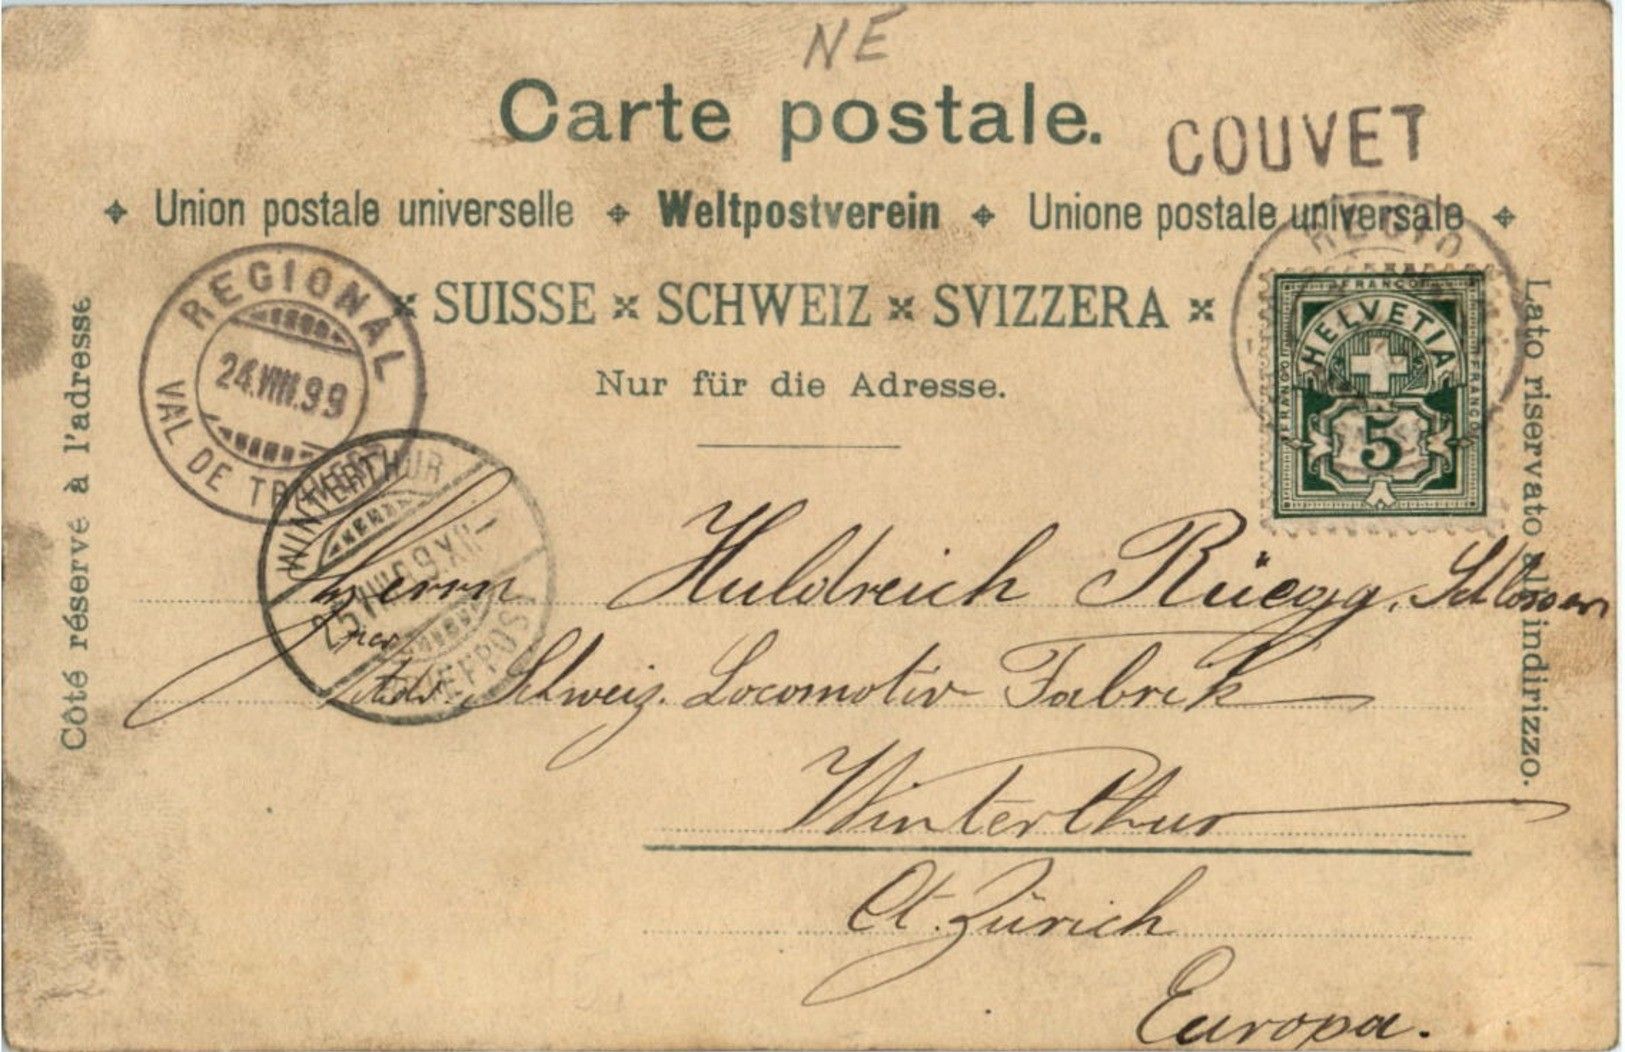 NE
Carte postale.
COUVET
Union postale universelle Weltpostverein Unione postale universale
SUISSE SCHWEIZ SVIZZERA
Nur für die Adresse.
Côté réservé à l'adresse
Lato riservato all'indirizzo.
REGIONAL
24.VIII.99
VAL DE TRAVERS
WINTERTHUR
25.VIII.99.XII-
BRIEFPOST
REGIO
FRANCO
HELVETIA
FRANCO
FRANCO
5
Herrn Huldreich Rüegg, Schlosser
Adr. Schweiz. Locomotiv Fabrik
Winterthur
Ct. Zürich
Europa.